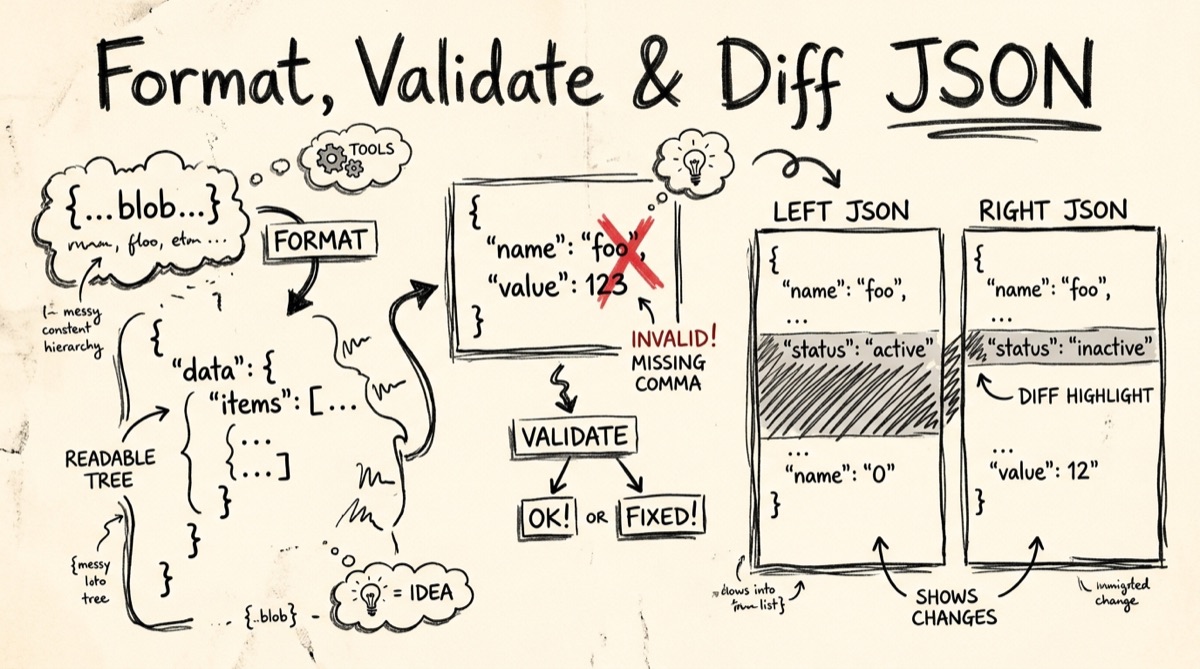 Format, Validate & Diff JSON
TOOLS
{...blob...}
FORMAT
messy
hierarchy
{
"data": {
"items": [...
{...
{...]
}
}
}
READABLE
TREE
{messy
tree
...{..blob} -
= IDEA
{
"name": "foo",
"value": 123
}
INVALID!
MISSING
COMMA
VALIDATE
OK! OR FIXED!
LEFT JSON
{
"name": "foo",
...
"status": "active"
...
"name": "0"
}
RIGHT JSON
{
"name": "foo",
...
"status": "inactive"
DIFF HIGHLIGHT
...
"value": 12"
}
SHOWS
CHANGES
into
list}
change